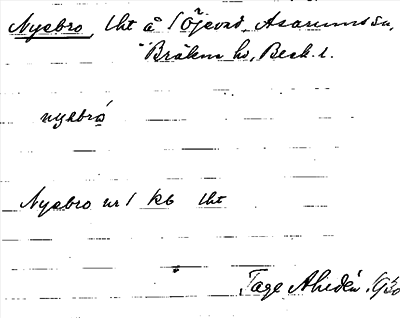 Nyebro, lht å Öjevad, Asarums sn,
Bräkne hd, Blek. l.
nyebró
Nyebro nr 1 kb lht
Tage Ahldén 1930